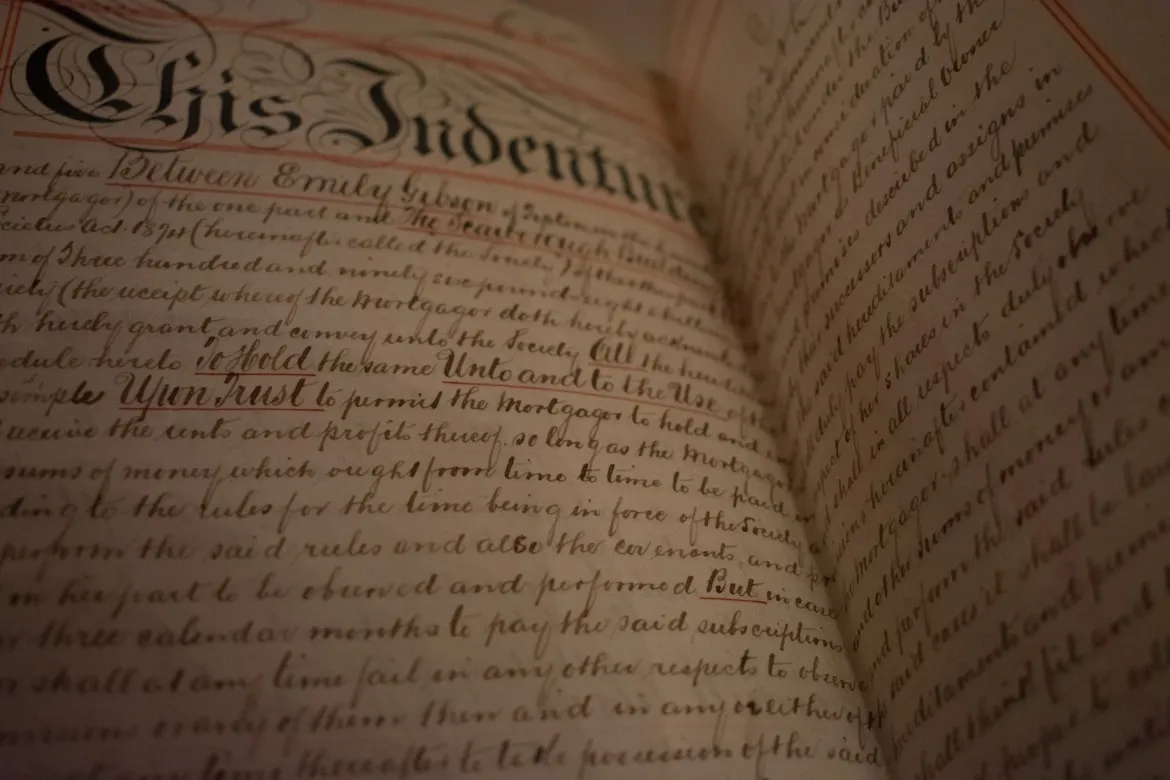 This Indenture
and five Between Emily Gibson of
mortgagor) of the one part and The Scarborough Building
Societies Act 1874 (hereinafter called the Society) of the other part
m of Three hundred and ninety five pounds eight shillings
iety (the receipt whereof the Mortgagor doth hereby acknow
h hereby grant and convey unto the Society All the heredita
edule hereto To Hold the same Unto and to the Use of the
simple Upon Trust to permit the Mortgagor to hold and
receive the rents and profits thereof so long as the Mortgagor
sums of money which ought from time to time to be paid
ding to the rules for the time being in force of the Society
perform the said rules and also the covenants and pr
on her part to be observed and performed But in case
r three calendar months to pay the said subscriptions
r shall at any time fail in any other respects to observe
visions or any of them then and in any or either of th
time thereafter to take possession of the said
under the
consideration of
the Mortgagor paid by the
as Beneficial Owner
premises described in the
their successors and assigns in
the said hereditaments and premises
duly pay the subscriptions and
respect of her shares in the Society
shall in all respects duly observe
hereinafter contained which
the mortgagor shall at any time
and other sums of money or
and perform the said rules
said case it shall be law
hereditaments and premi
shall think fit and